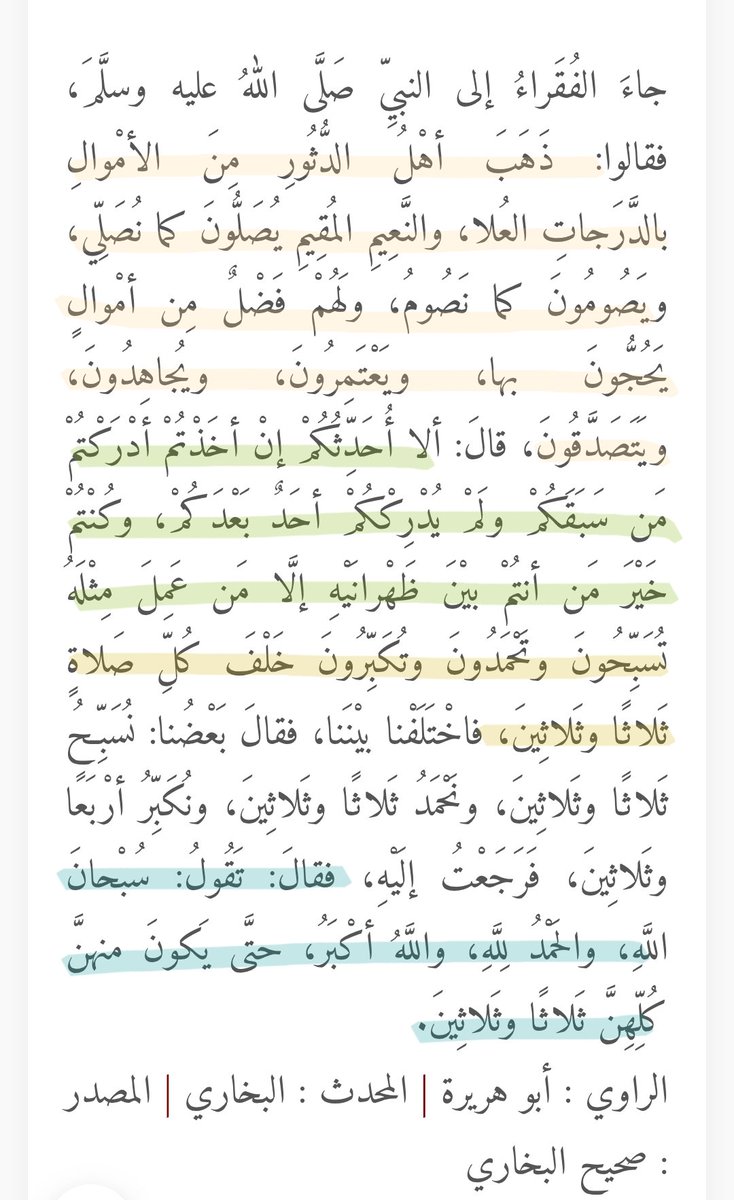 جاءَ الفُقَراءُ إلى النبيِّ صَلَّى اللهُ عليه وسلَّمَ،
فقالوا: ذَهَبَ أهْلُ الدُّثُورِ مِنَ الأمْوالِ
بالدَّرَجاتِ العُلا، والنَّعِيمِ المُقِيمِ يُصَلُّونَ كما نُصَلِّي،
ويَصُومُونَ كما نَصُومُ، ولَهُمْ فَضْلٌ مِن أمْوالٍ
يَحُجُّونَ بها، ويَعْتَمِرُونَ، ويُجاهِدُونَ،
ويَتَصَدَّقُونَ، قالَ: ألا أُحَدِّثُكُمْ إنْ أخَذْتُمْ أدْرَكْتُمْ
مَن سَبَقَكُمْ ولَمْ يُدْرِكْكُمْ أحَدٌ بَعْدَكُمْ، وكُنْتُمْ
خَيْرَ مَن أنتُمْ بيْنَ ظَهْرانَيْهِ إلَّا مَن عَمِلَ مِثْلَهُ
تُسَبِّحُونَ وتَحْمَدُونَ وتُكَبِّرُونَ خَلْفَ كُلِّ صَلاةٍ
ثَلاثًا وثَلاثِينَ، فاخْتَلَفْنا بيْنَنا، فقالَ بَعْضُنا: نُسَبِّحُ
ثَلاثًا وثَلاثِينَ، ونَحْمَدُ ثَلاثًا وثَلاثِينَ، ونُكَبِّرُ أرْبَعًا
وثَلاثِينَ، فَرَجَعْتُ إلَيْهِ، فقالَ: تَقُولُ: سُبْحانَ
اللَّهِ، والحَمْدُ لِلَّهِ، واللَّهُ أكْبَرُ، حتَّى يَكونَ منهنَّ
كُلِّهِنَّ ثَلاثًا وثَلاثِينَ.
الراوي : أبو هريرة | المحدث : البخاري | المصدر
: صحيح البخاري